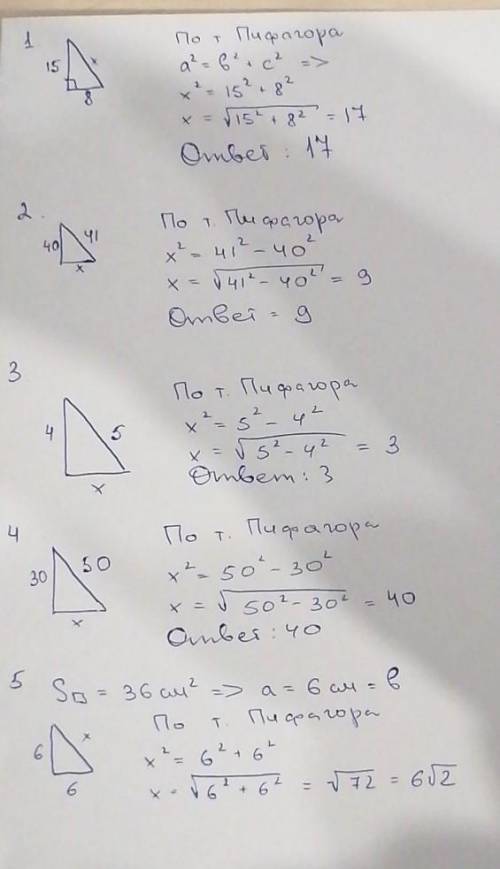 1
15
x
8
По т. Пифагора
a² = b² + c² =>
x² = 15² + 8²
x = √15² + 8² = 17
Ответ : 17
2.
40
41
x
По т. Пифагора
x² = 41² - 40²
x = √41² - 40² = 9
Ответ = 9
3
4
5
x
По т. Пифагора
x² = 5² - 4²
x = √5² - 4² = 3
Ответ : 3
4
30
50
x
По т. Пифагора
x² = 50² - 30²
x = √50² - 30² = 40
Ответ : 40
5
S□ = 36 см² => a = 6 см = b
6
x
6
По т. Пифагора
x² = 6² + 6²
x = √6² + 6² = √72 = 6√2